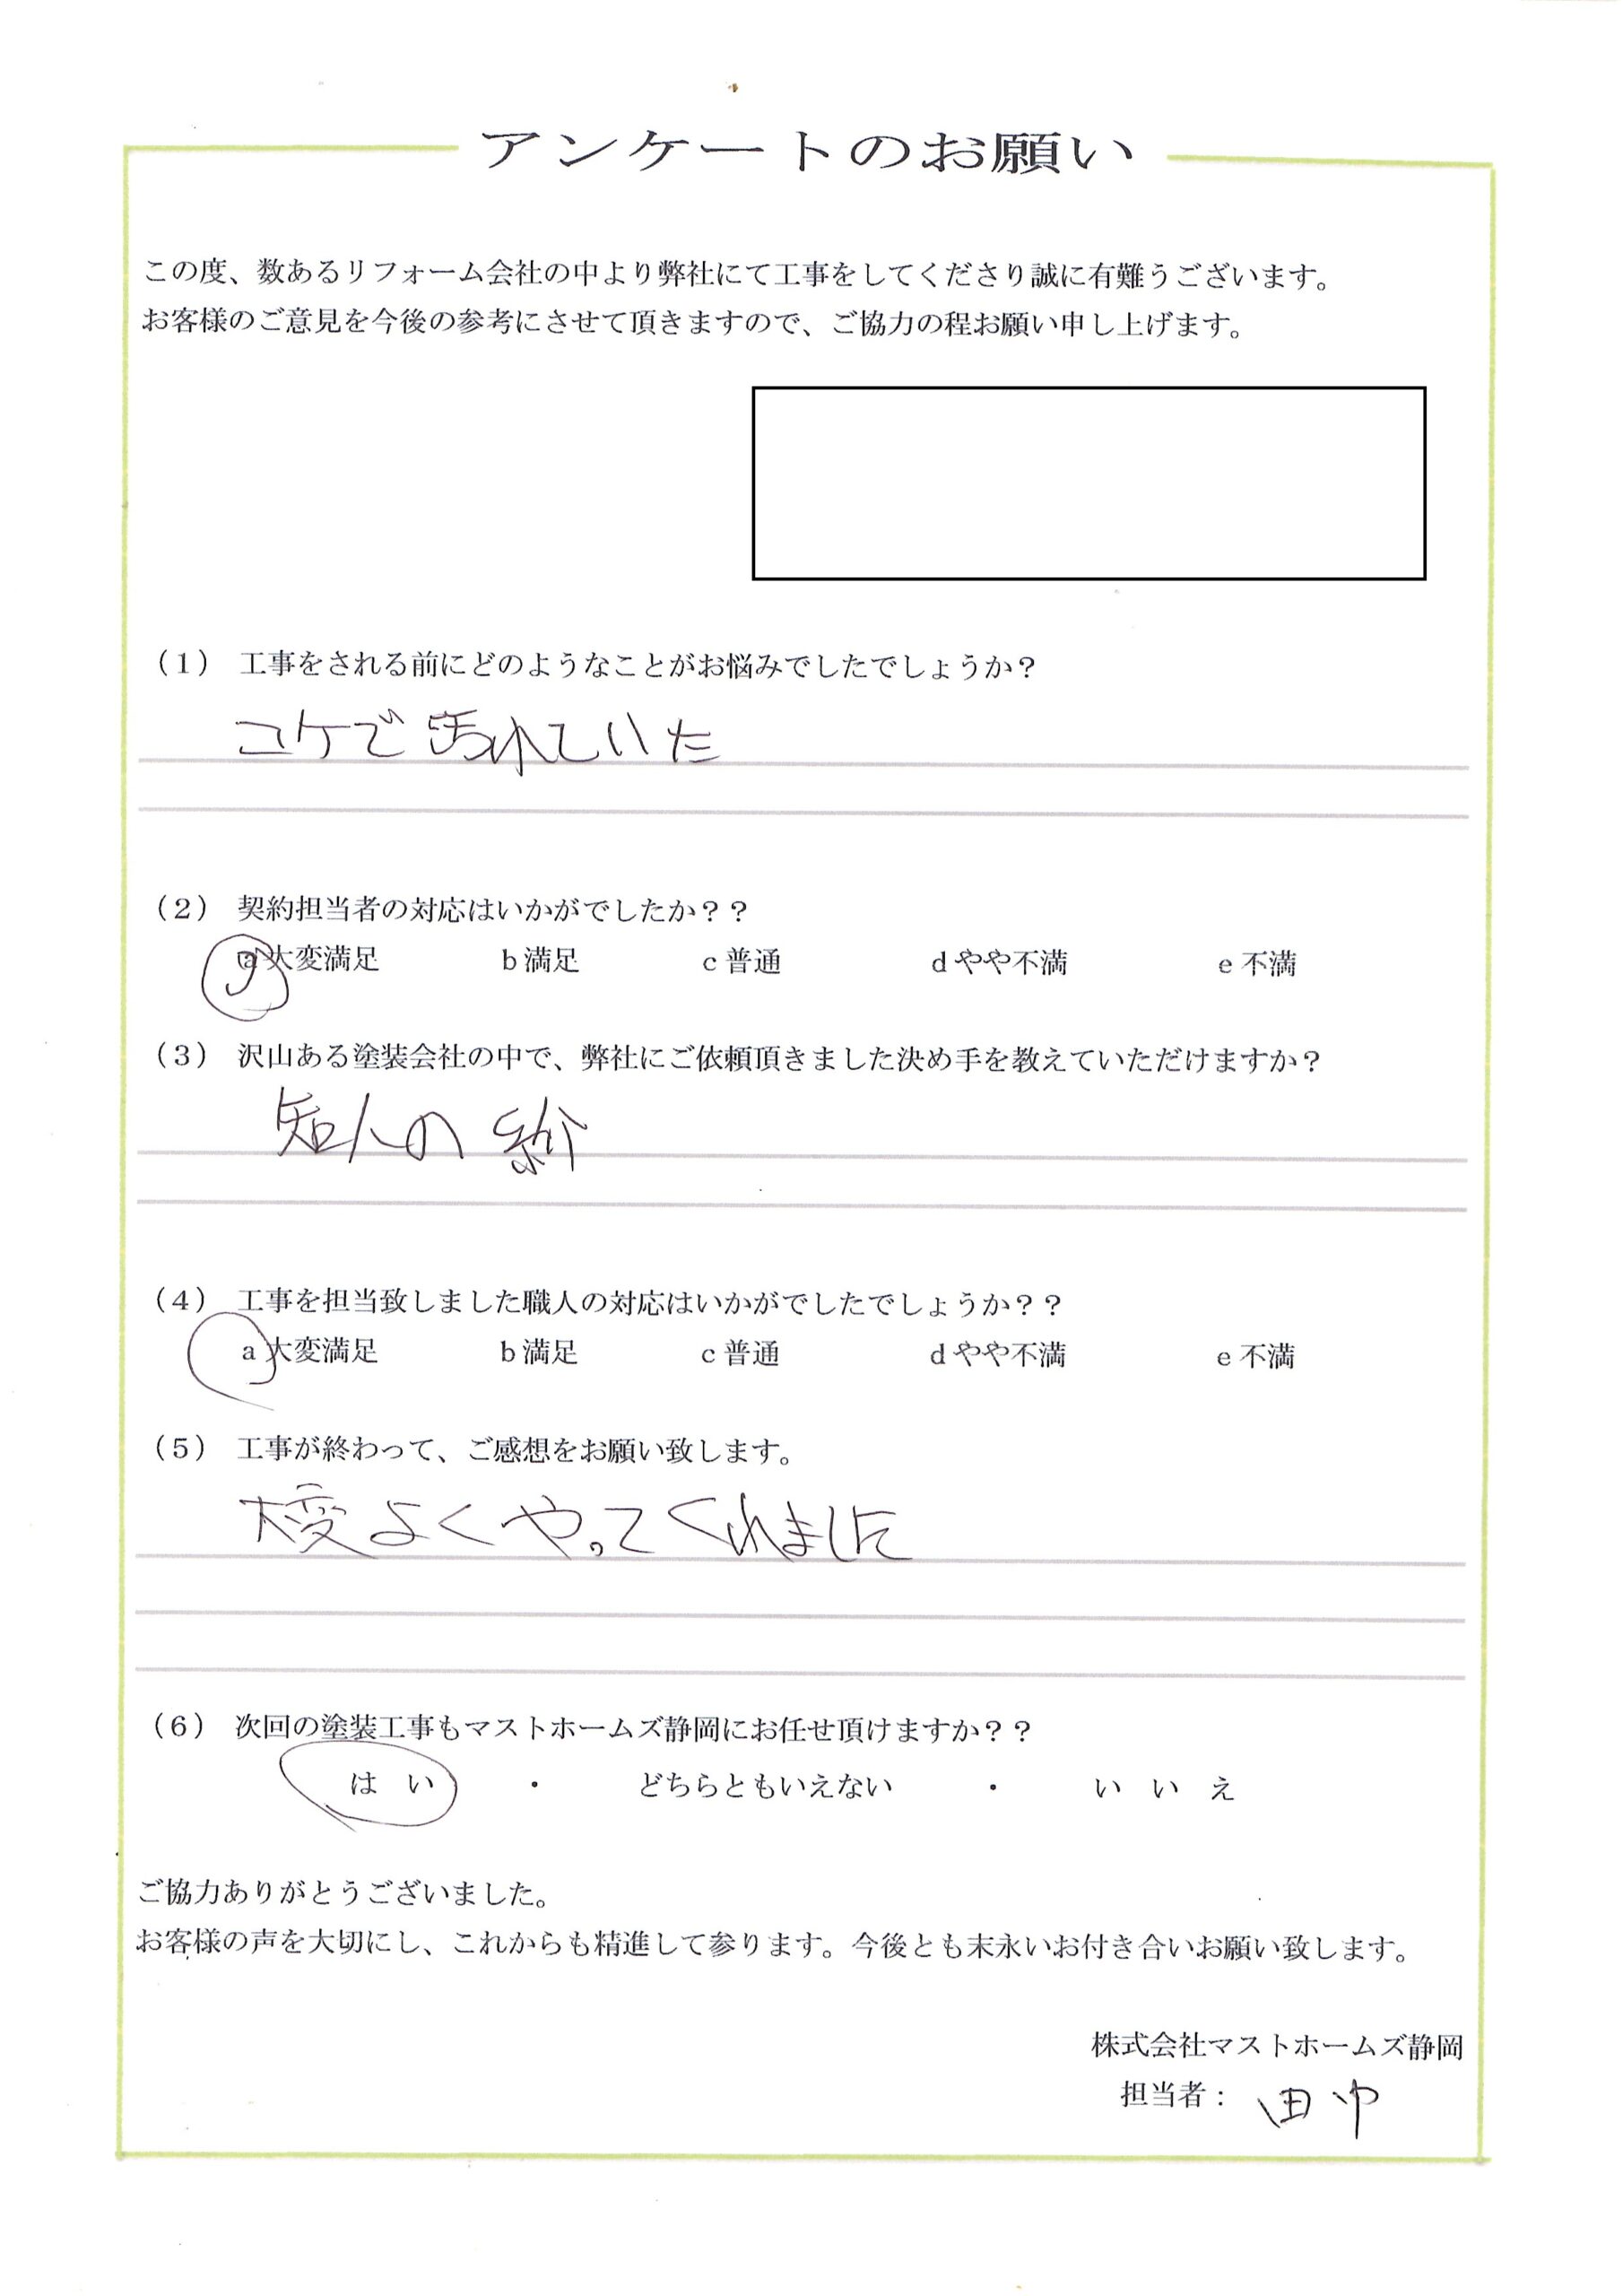 アンケートのお願い
この度、数あるリフォーム会社の中より弊社にて工事をしてくださり誠に有難うございます。
お客様のご意見を今後の参考にさせて頂きますので、ご協力の程お願い申し上げます。
（1） 工事をされる前にどのようなことがお悩みでしたでしょうか？
コケで汚れていた
（2） 契約担当者の対応はいかがでしたか？？
a 大変満足 b 満足 c 普通 d やや不満 e 不満
（3） 沢山ある塗装会社の中で、弊社にご依頼頂きました決め手を教えていただけますか？
知人の紹介
（4） 工事を担当致しました職人の対応はいかがでしたでしょうか？？
a 大変満足 b 満足 c 普通 d やや不満 e 不満
（5） 工事が終わって、ご感想をお願い致します。
大変よくやってくれました
（6） 次回の塗装工事もマストホームズ静岡にお任せ頂けますか？？
は い ・ どちらともいえない ・ い い え
ご協力ありがとうございました。
お客様の声を大切にし、これからも精進して参ります。今後とも末永いお付き合いお願い致します。
株式会社マストホームズ静岡
担当者： 田中